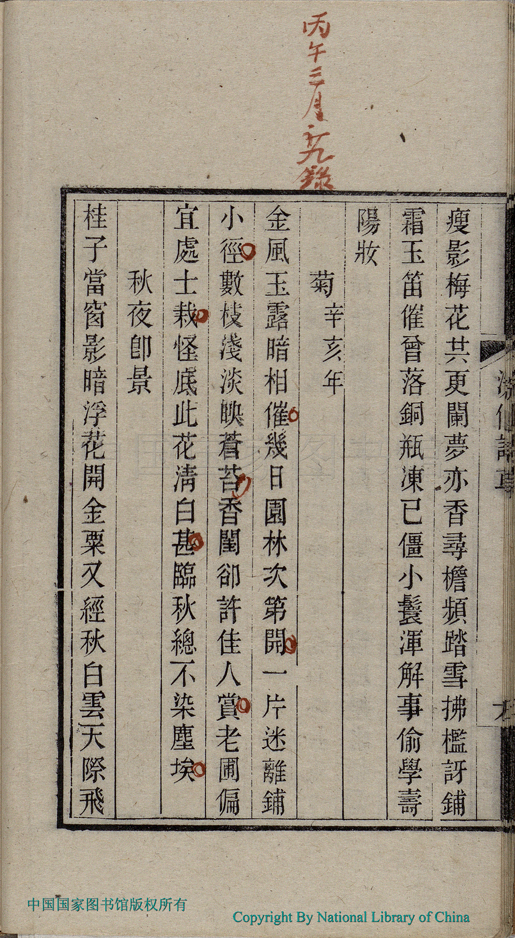 丙午三月廿九錄
瘦影梅花共更闌夢亦香尋檐頻踏雪拂檻訝鋪
霜玉笛催曾落銅瓶凍已僵小鬟渾解事偷學壽
陽妝
菊辛亥年
金風玉露暗相催幾日園林次第開一片迷離鋪
小徑數枝淺淡映蒼苔香閨卻許佳人賞老圃偏
宜處士栽怪底此花清白甚臨秋總不染塵埃
秋夜卽景
桂子當窗影暗浮花開金粟又經秋白雲天際飛
中国国家图书馆版权所有
Copyright By National Library of China